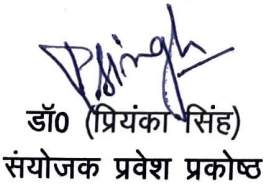 Psingh
डॉ0 (प्रियंका सिंह)
संयोजक प्रवेश प्रकोष्ठ